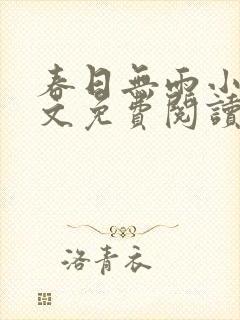 春日無雨小
文免費閱讀
洛青衣